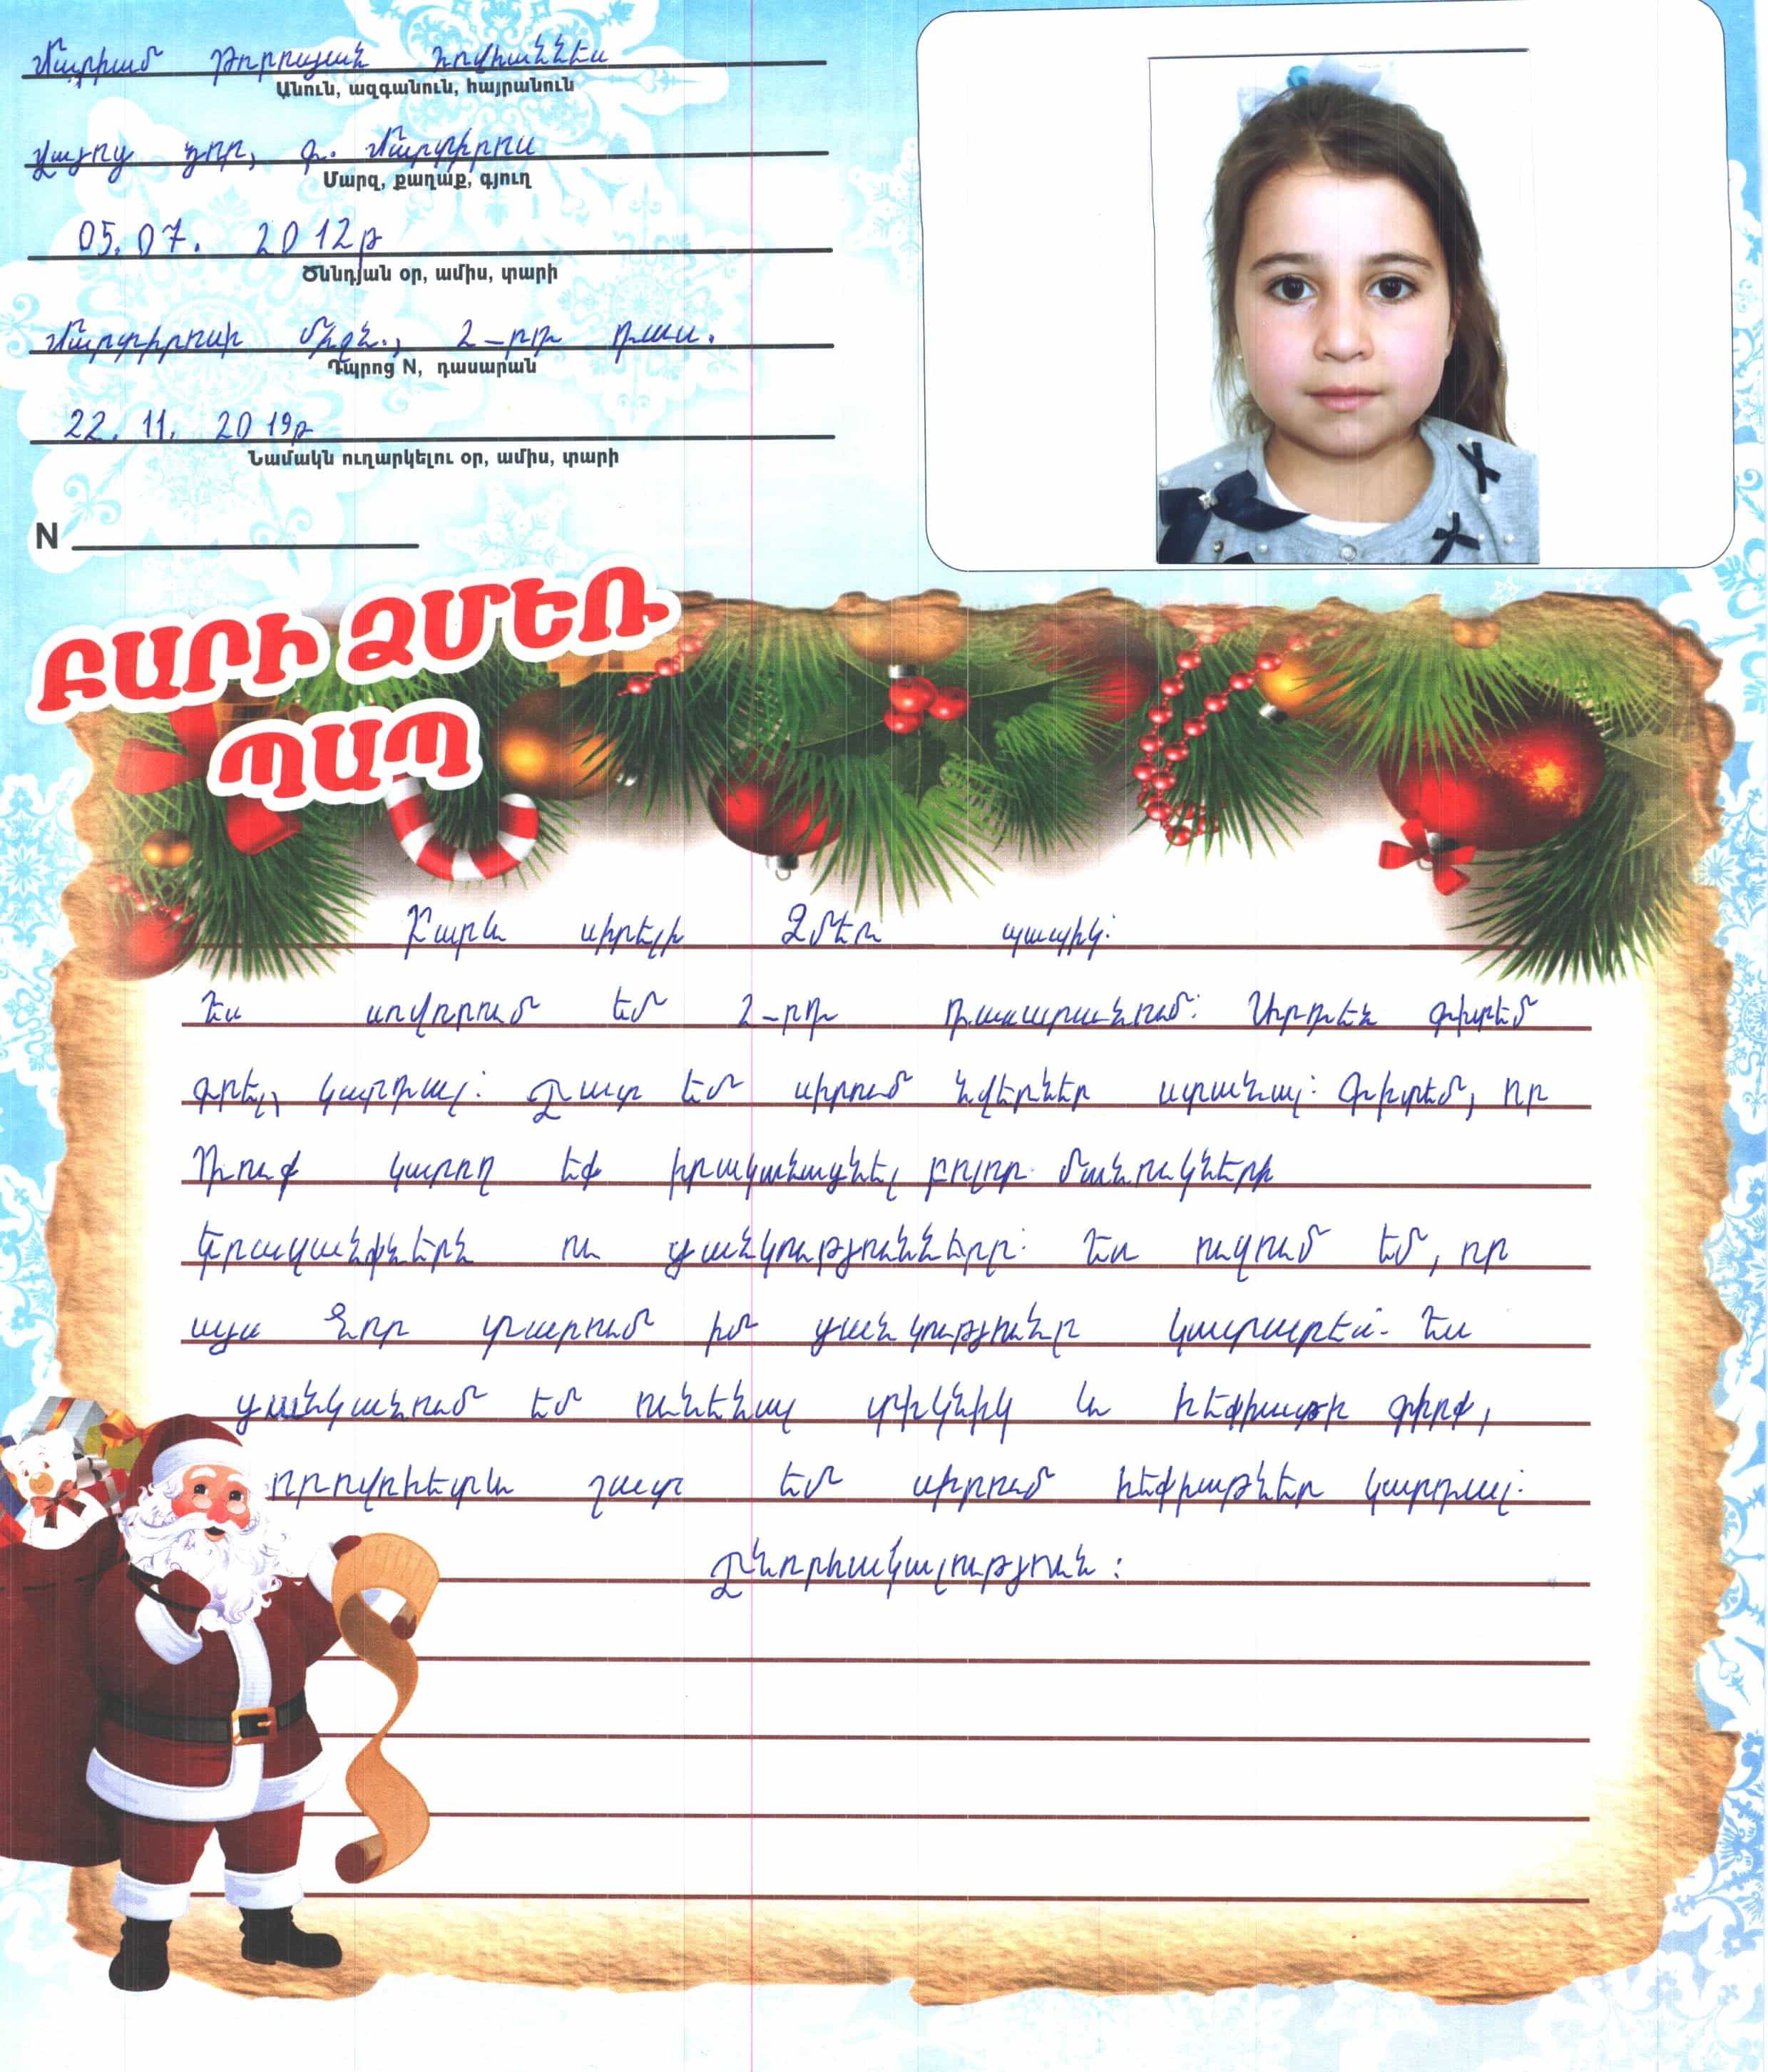 Մարիամ Թորոսյան Հովհաննես
Անուն, ազգանուն, հայրանուն
Վայոց ձոր, գ. Մարտիրոս
Մարզ, քաղաք, գյուղ
05.07. 2012թ
Ծննդյան օր, ամիս, տարի
Մարտիրոսի միջն., 2-րդ դաս.
Դպրոց N, դասարան
22.11. 2019թ
Նամակն ուղարկելու օր, ամիս, տարի
N
ԲԱՐԻ ՁՄԵՌ
ՊԱՊ
Բարև սիրելի Ձմեռ պապիկ:
Ես սովորում եմ 2-րդ դասարանում: Արդեն գիտեմ
գրել, կարդալ: Շատ եմ սիրում նվերներ ստանալ: Գիտեմ, որ
Դուք կարող եք իրականացնել բոլոր մանուկների
երազանքներն ու ցանկությունները: Ես ուզում եմ, որ
այս Նոր տարում իմ ցանկությունը կատարես: Ես
ցանկանում եմ ունենալ տիկնիկ և հեքիաթի գիրք,
որովհետև շատ եմ սիրում հեքիաթներ կարդալ:
Շնորհակալություն: